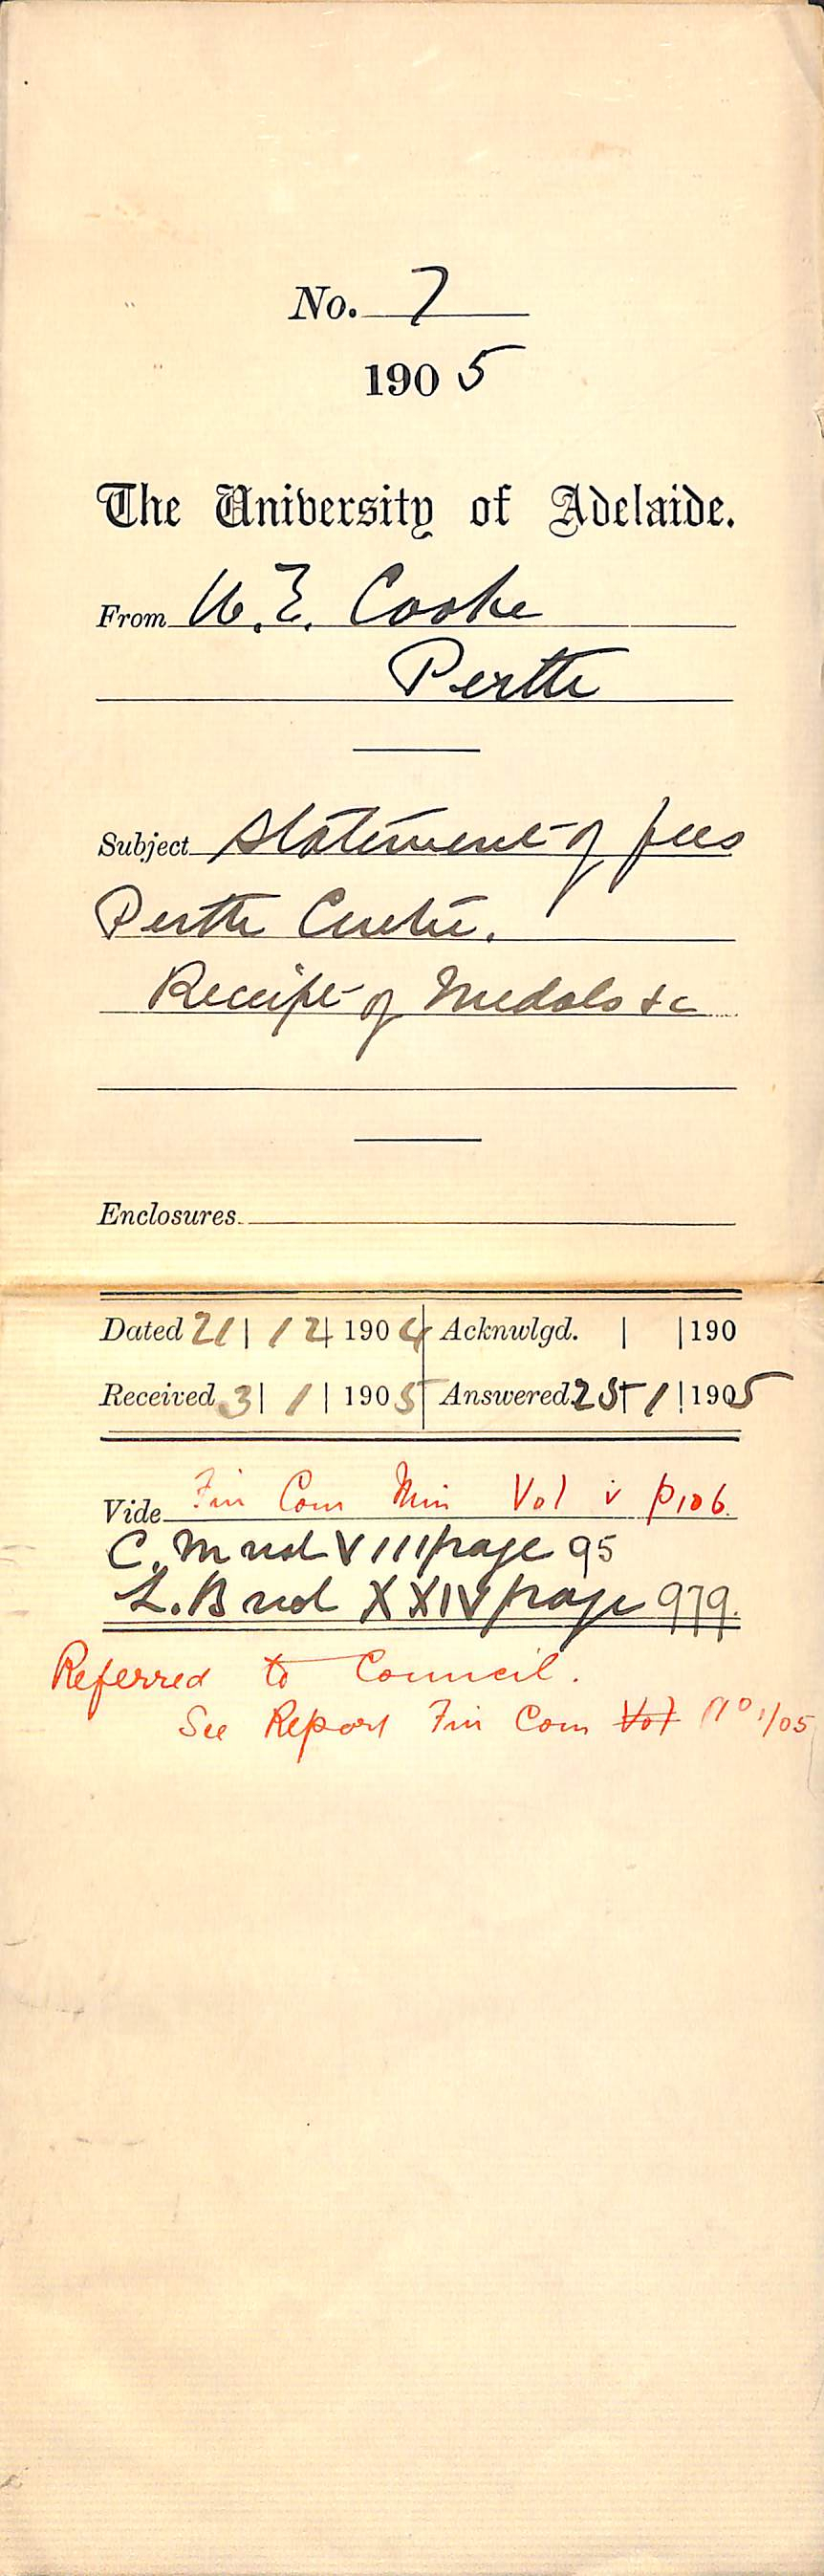 No. 7
1905
The University of Adelaide.
From W. E. Cooke
Perth
Subject Statement of fees
Perth Centre.
Receipt of Medals &c
Enclosures
Dated 21 | 12 | 1904 Acknwlgd. | | 190
Received 3 | 1 | 1905 Answered 25 | 1 | 1905
Vide Fin Com Min Vol v p106.
C. M vol VIII page 95
L. B vol XXIV page 979.
Referred to Council.
See Report Fin Com Vol No 1/05